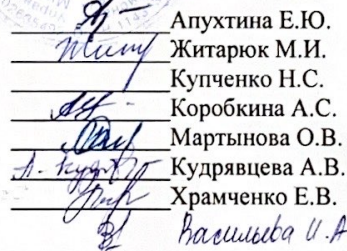 Апухтина Е.Ю.
Житарюк М.И.
Купченко Н.С.
Коробкина А.С.
Мартынова О.В.
Кудрявцева А.В.
Храмченко Е.В.
Васильева И.А